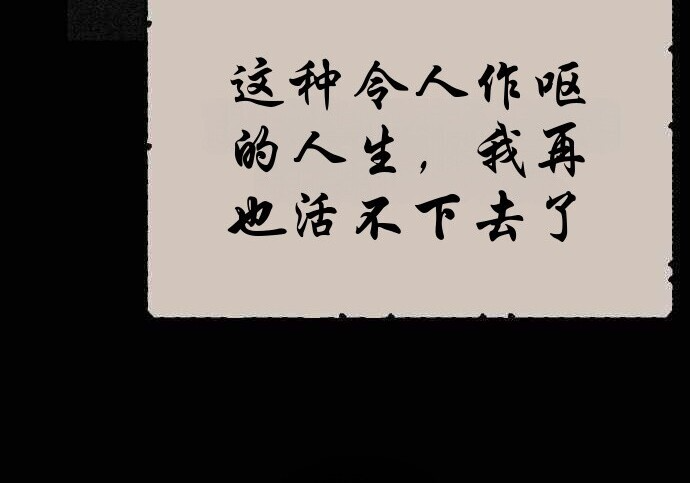 这种令人作呕
的人生，我再
也活不下去了